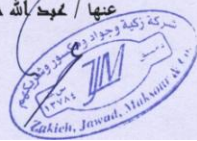 عنها / عبد الله
شركة زكية وجواد ومكسور وشريكهم
JM
١٣٧٨٤
Zakieh, Jawad, Maksour & Co.